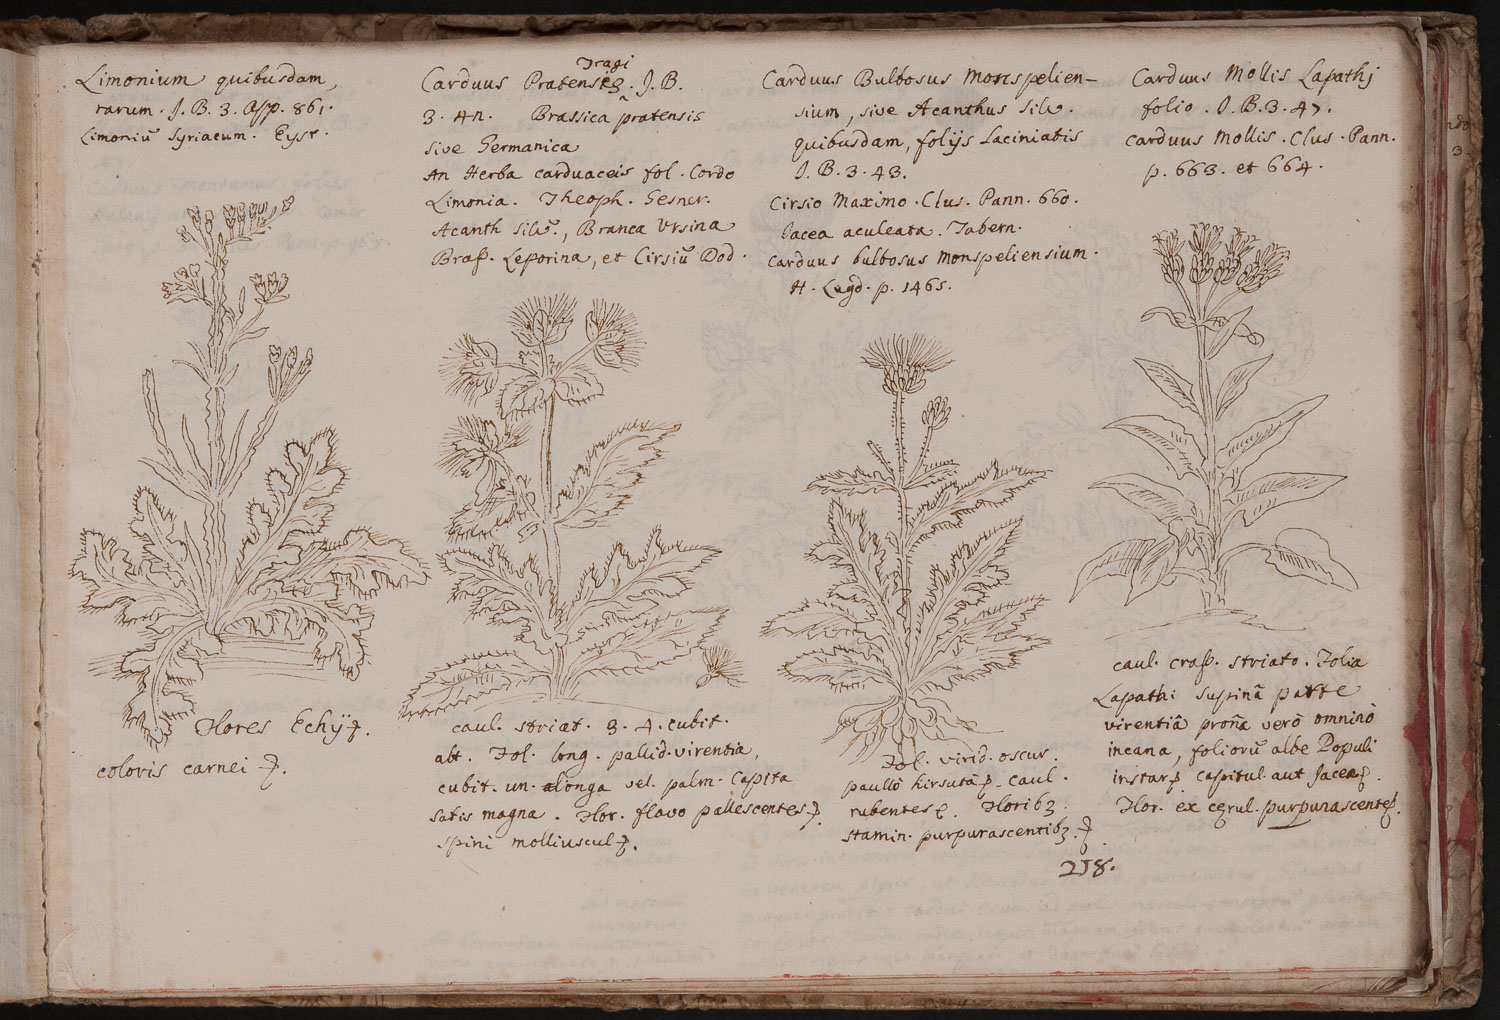 Limonium quibusdam,
rarum. J. B. 3. App. 861.
Limoniū Syriacum. Eyst.
Tragi
Carduus Pratensis. J. B.
3. 4n. Brassica pratensis
sive Germanica
An Herba carduaceis fol. Cordo
Limonia. Theoph. Gesner.
Acanth silv., Branca Ursina
Brass. Leporina, et Cirsiū Dod.
Carduus Bulbosus Monspelien-
sium, sive Acanthus silv.
quibusdam, folijs laciniatis
J. B. 3. 43.
Cirsio Maximo. Clus. Pann. 660.
Iacea aculeata. Tabern.
Carduus bulbosus monspeliensium.
H. Lugd. p. 1465.
Carduus Mollis Lapathj
folio. J. B. 3. 47.
Carduus Mollis. Clus. Pann.
p. 663. et 664.
Flores Echÿ
coloris carnei
caul. striat. 3. 4. cubit.
alt. Fol. long. pallid. virentia,
cubit. un. alonga vel. palm. Capita
satis magna. Flor. flavo pallescentes
spini molliuscul
Fol. virid. oscur.
paullò hirsuta caul.
rubentes. Florib3.
stamin. purpurascentib3.
caul. crass. striato. Folia
Lapathi supinā parte
virentiā pronā verò omninò
incana, foliorū albe Populi
instar capitul. aut Jacea
Flor. ex cęrul. purpurascente
218.